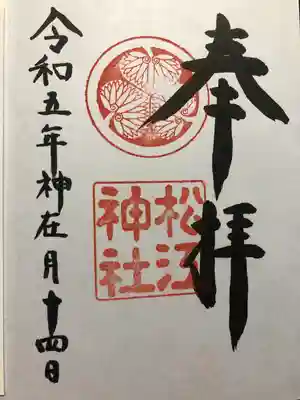 奉拝
松江
神社
令和五年神在月十四日